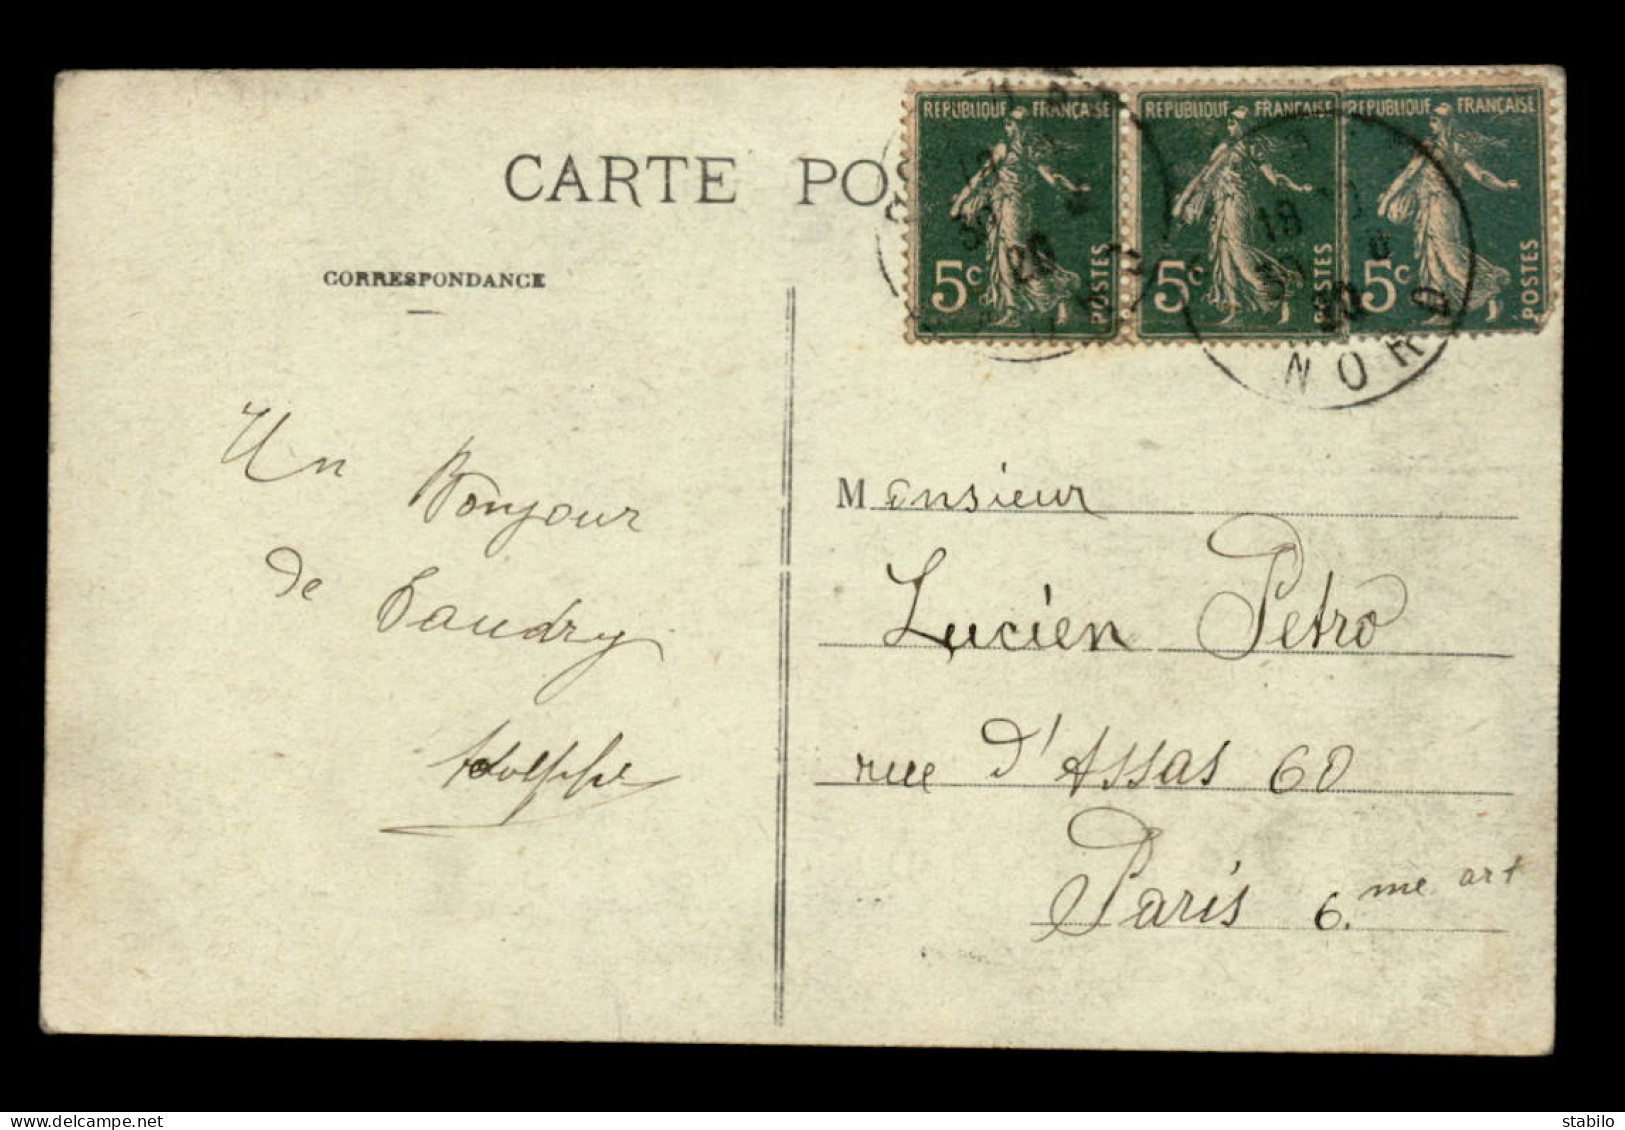 CARTE POS
REPUBLIQUE FRANÇAISE
5c
POSTES
REPUBLIQUE FRANÇAISE
5c
POSTES
REPUBLIQUE FRANÇAISE
5c
POSTES
18
20
NORD
CORRESPONDANCE
Un Bonjour
de Caudry
Adolphe
Monsieur
Lucien Petro
rue d'Assas 60
Paris 6.me art
delcampe.net
stabilo